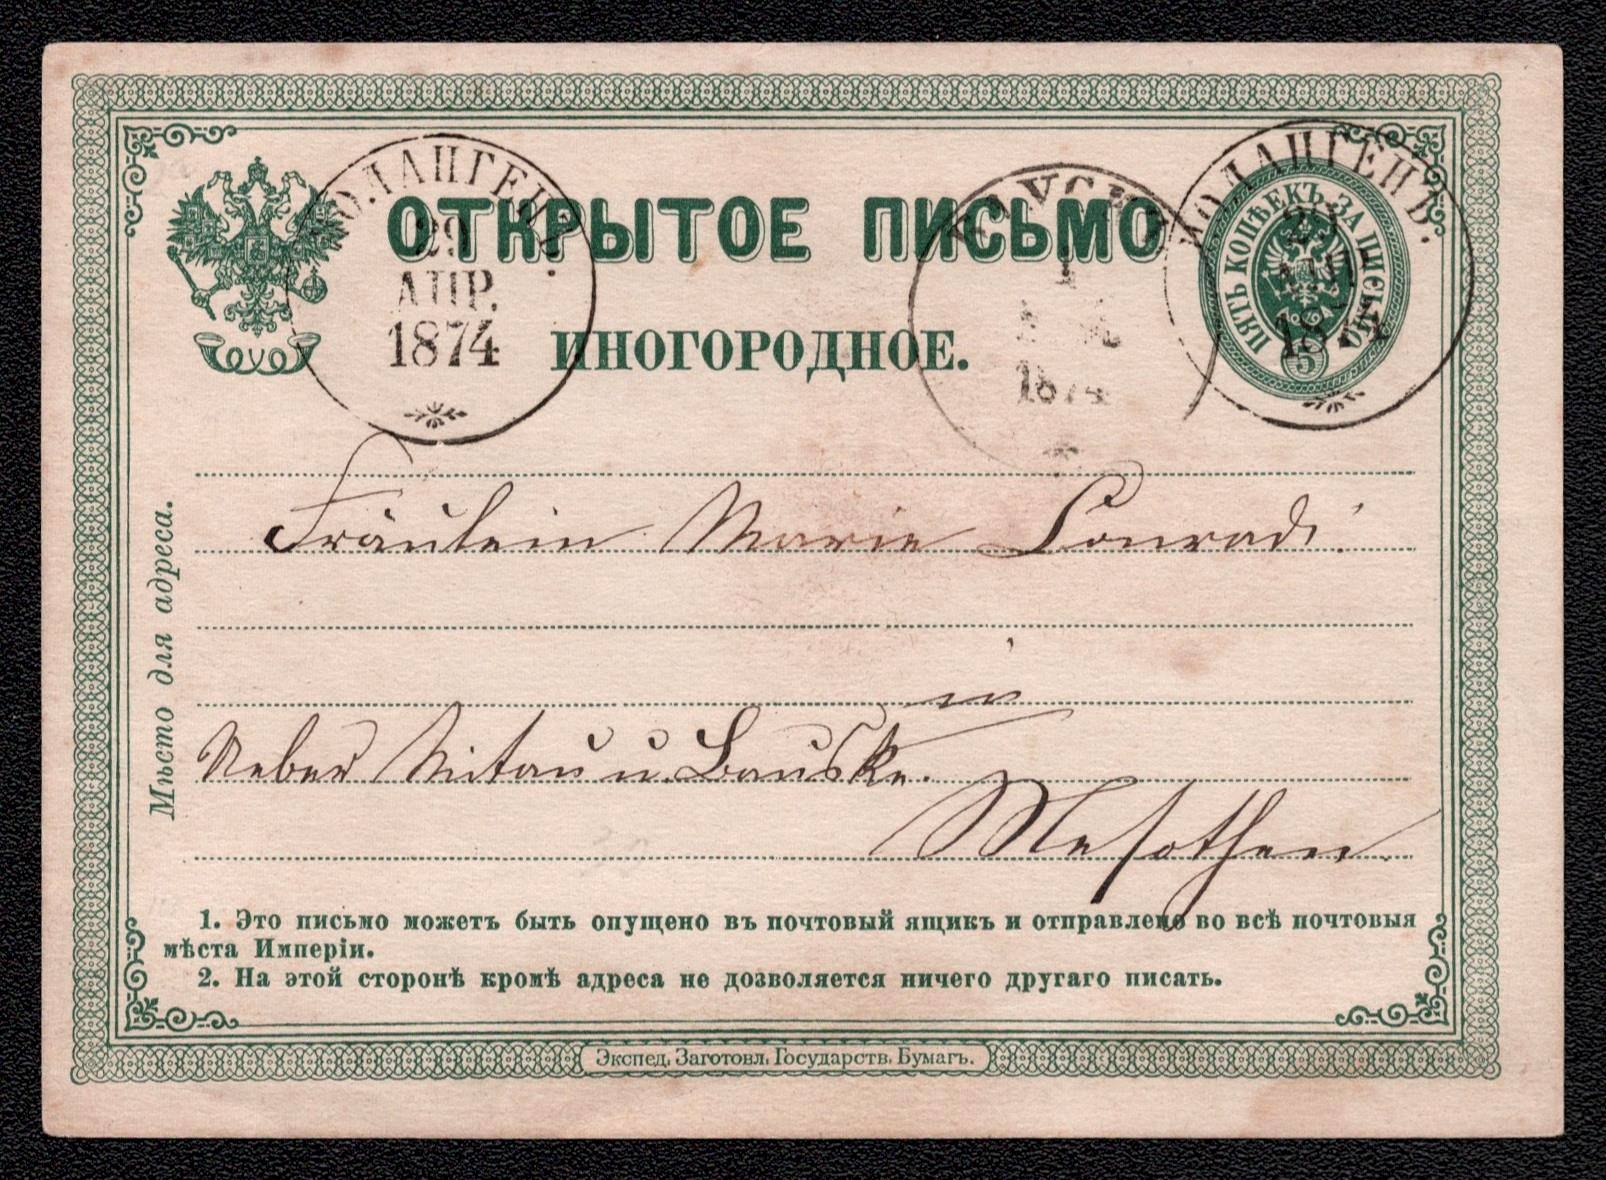 ОТКРЫТОЕ ПИСЬМО
ИНОГОРОДНОЕ.
ПОЛАНГЕНЪ.
29
АПР.
1874
БАУСКЪ
1
1874
ПОЛАНГЕНЪ.
29
АПР.
1874
ПЯТЬ КОПѢЕКЪ ЗА ПИСЬМО
5
Мѣсто для адреса.
Fräulein Marie Conradi
in
Ueber Mitau u. Bauske.
Mesothen
1. Это письмо можетъ быть опущено въ почтовый ящикъ и отправлено во всѣ почтовыя
мѣста Имперіи.
2. На этой сторонѣ кромѣ адреса не дозволяется ничего другаго писать.
Экспед. Заготовл. Государств. Бумагъ.